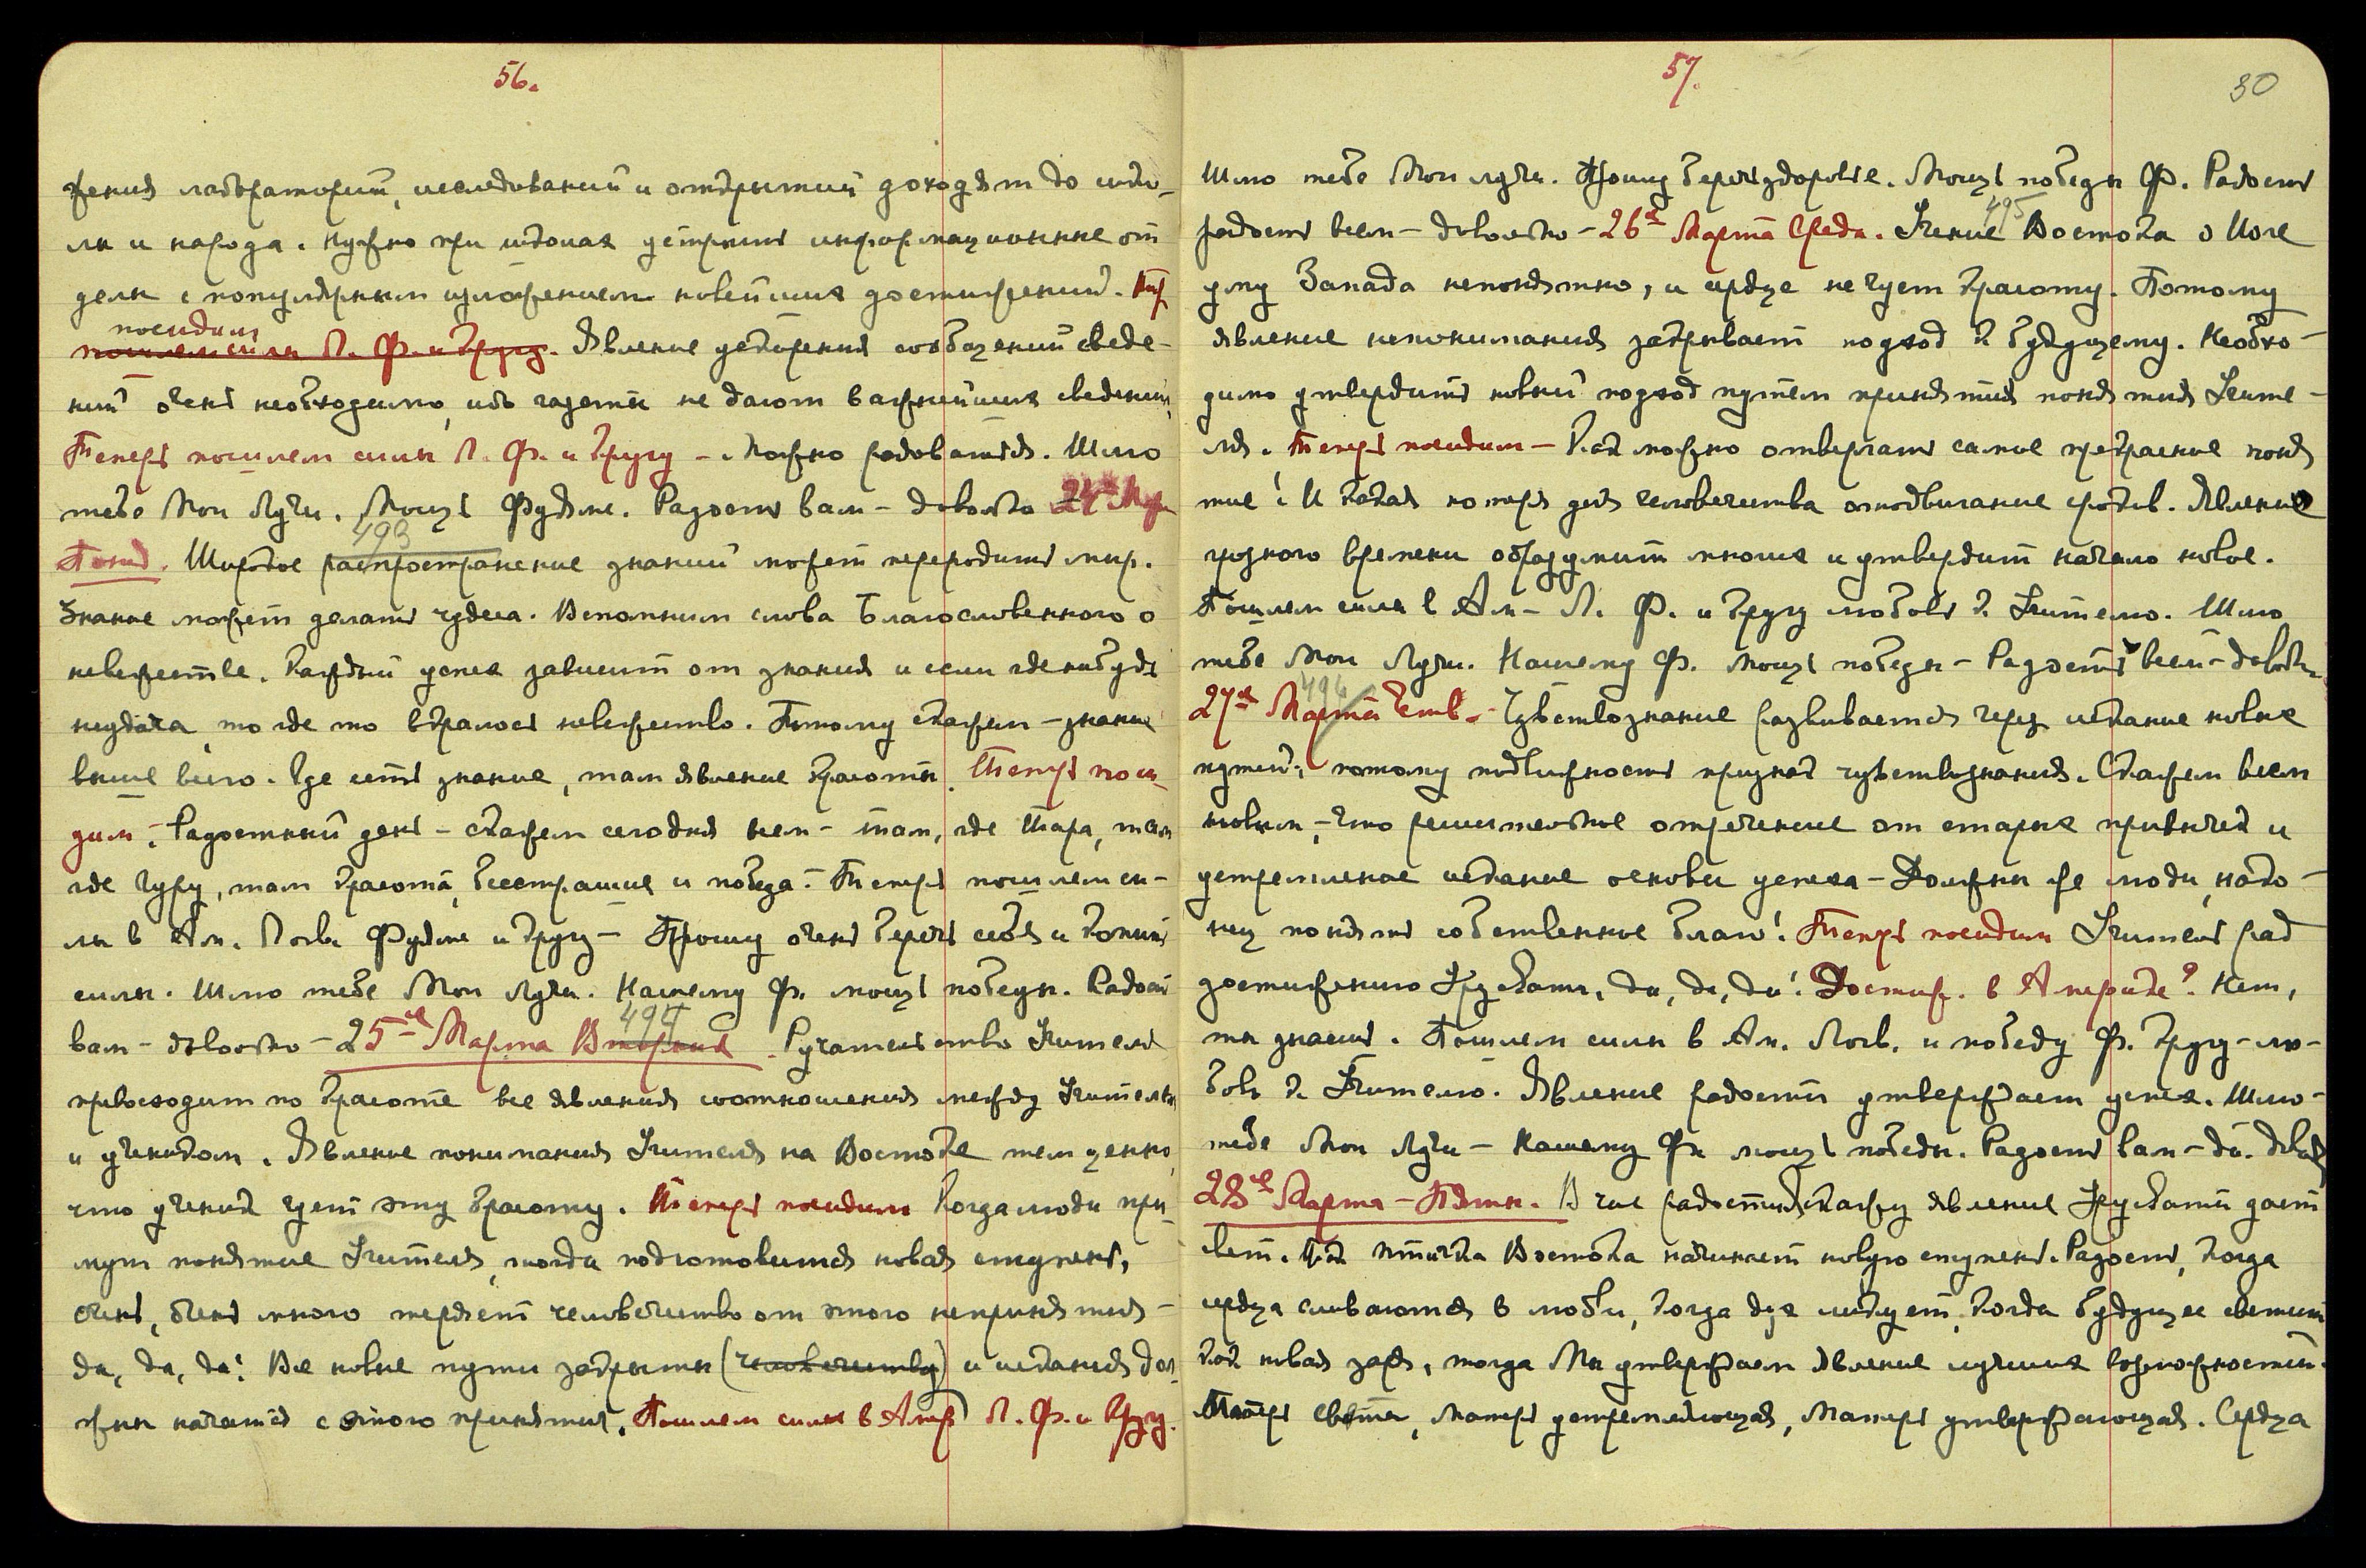 56.
жения лабораторий, исследований и открытий доходят до шко-
лы и народа. Нужно при школах устроить информационные от
делы с популярным изложением новейших достижений. Тер
посидим
пошлем силы Л. Ф. и другу. Явление ускорения сообщений сведе-
ний очень необходимо, ибо газеты не дают важнейших сведений,
Теперь пошлем силы Л. Ф. и другу – . Можно радоваться. Шлю
тебе Мои Лучи. Мощь Фудяме. Радость вам – довольно 24 Мар
493
Понед. Широкое распространение знаний может переродить мир.
Знание может делать чудеса. Вспомним слова Благословенного о
невежестве. Каждый успех зависит от знания и если где нибудь
неудача, то где то вкралось невежество. Потому скажем – знание
выше всего. Где есть знание, там явление красоты. Теперь поси-
дим. Радостный день – скажем сегодня всем – там, где Тара, там
где Гуру, там красота, бесстрашие и победа. Теперь пошлем си-
лы в Ам. Логв. Фудяме и другу – Прошу очень беречь себя и копить
силы. Шлю тебе Мои Лучи. Нашему Ф. мощь победы. Радость
494
вам – довольно – 25-е Марта Вторник. Ручательство Учителя
превосходит по красоте все явления соотношения между Учителем
и учеником. Явление понимания Учителя на Востоке тем ценно,
что ученик чует эту красоту. Теперь посидим Когда люди при-
мут понятие Учителя, тогда подготовится новая ступень,
очень, очень много теряет человечество от этого непринятия –
да, да, да! Все новые пути закрыты (человечеству) и искания дол-
жны начаться с этого принятия. Пошлем силы в Амер Л. Ф. и другу.
57.
30
Шлю тебе Мои лучи. Прошу беречь здоровье. Мощь победы Ф. Радость
495
радость всем – довольно – 26-е Марта Среда. Учение Востока о Йоге
уму Запада непонятно, и сердце не чует красоту. Потому
явление непонимания закрывает подход к будущему. Необхо-
димо утвердить новый подход путем принятия понятия Учите-
ля. Теперь посидим – Как можно отвергать самое прекрасное поня
тие! И какая потеря для человечества отодвигание сроков. Явление
грозного времени образумит многих и утвердит начало новое.
Пошлем силы в Ам – Л. Ф. и другу любовь к Учителю. Шлю
тебе Мои Лучи. Нашему Ф. мощь победы – Радость всем – довольно
496
27-е Марта Четв. – Чувствознание развивается через искание новых
путей; потому подвижность признак чувствознания. Скажем всем
новым, – что решительное отречение от старых привычек и
устремленное искание основы успеха – Должны же люди, нако-
нец понять собственное благо! Теперь посидим Учитель рад
достижению Урусвати, да, да, да! Достиж. в Америке? Нет,
ты знаешь. Пошлем силы в Ам. Логв. и победу Ф. Другу – лю-
бовь к Учителю. Явление радости утверждает успех. Шлю –
тебе Мои Лучи – Нашему Ф. мощь победы. Радость вам – да. Доволь
28-е Марта – Пятн. В час радости скажу явление Урусвати дает
свет. Так птичка Востока начинает новую ступень. Радость, когда
сердца сливаются в любви, когда дух ликует, когда будущее светит
как новая заря, тогда Мы утверждаем явление лучших возможностей.
Матерь света, Матерь устремляющая, Матерь утверждающая. Сердца